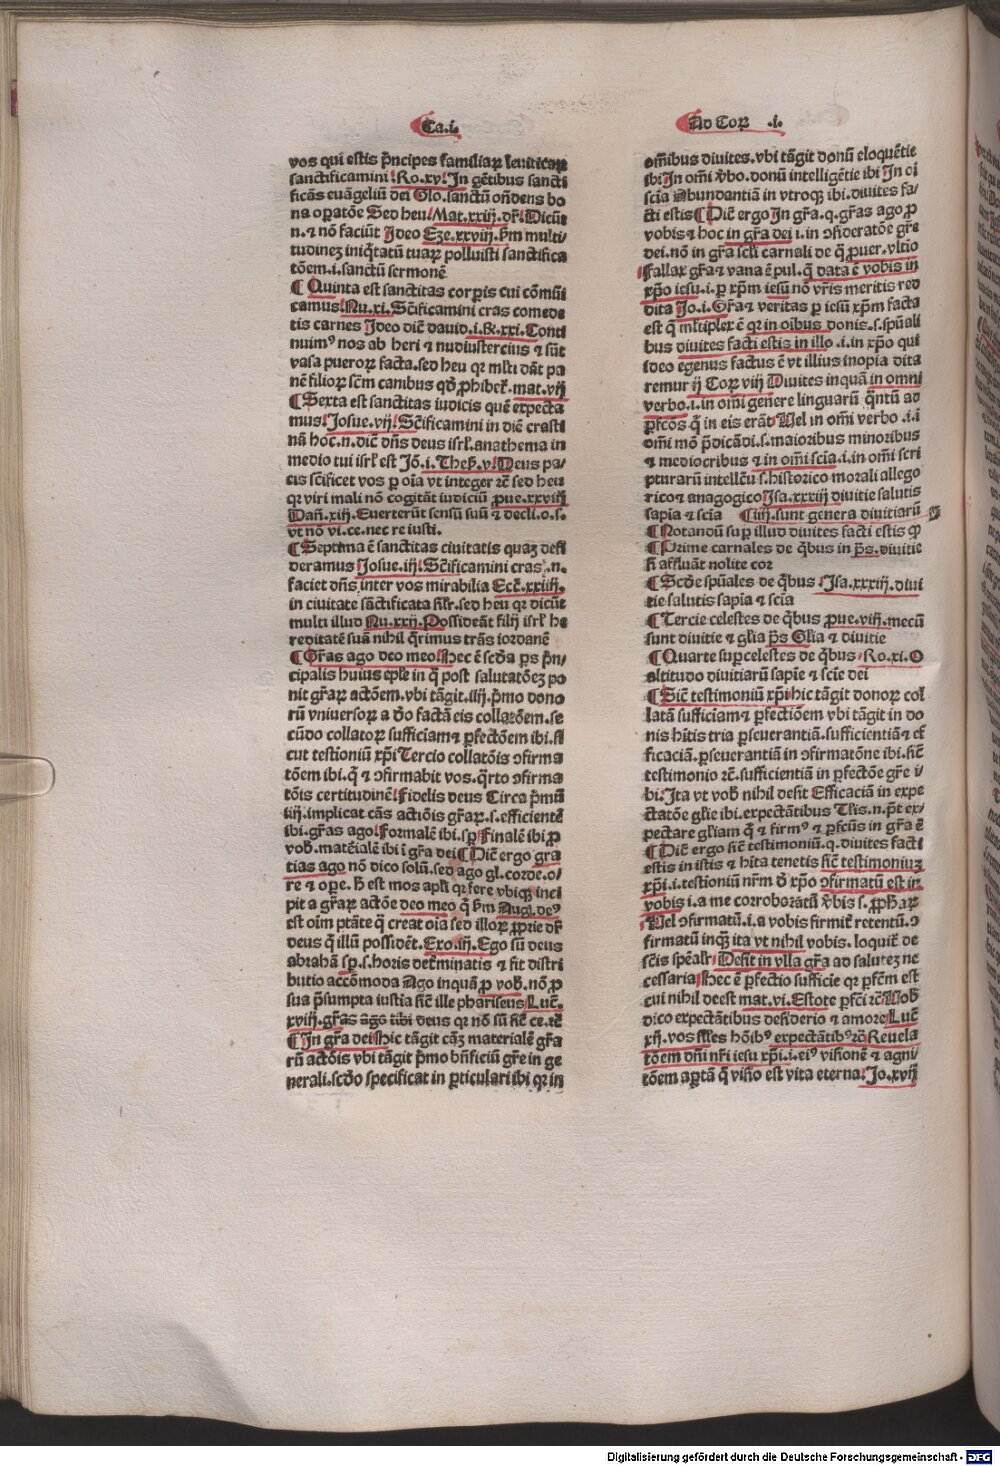 Ca.i.
Ad Corꝝ .i.
vos qui estis p̄ncipes familiaꝝ leuiticaꝝ
sanctificamini Ro.xv. In gētibus sancti
ficās euāgeliū dei Glo. sanctū oñdens bo
na oꝑatōe Sed heu Mat.xxiij. dr̄. Dicūt
n. ⁊ nō faciūt Ideo Eze.xxviij. ꝑm multi
tudineꝫ iniq̄tatū tuaꝝ polluisti sanctifica
tōem .i. sanctū sermonē
¶ Quinta est sanctitas corꝑis cui cōmūi
camus. Nu.xi. Sc̄ificamini cras comede
tis carnes Ideo diē dauid .i. R̄.xxi. Conti
nuimꝰ nos ab heri ⁊ nudiustercius ⁊ sūt
vasa pueroꝝ facta. sed heu qꝛ ml̄ti dāt pa
nē filioꝝ sc̄m canibus qđ ꝓhibet̄. mat.vij
¶ Sexta est sanctitas iudicis quē expecta
mus. Josue.vij. Sc̄ificamini in diē crasti
nā hoc .n. dic̄ dn̄s deus isrl̄. anathema in
medio tui isrl̄ est Jō .i. Theſ.v. Deus pa/
cis sc̄ificet vos ꝑ oīa vt integer rc̄ sed heu
qꝛ viri mali nō cogitāt iudiciū ꝓue.xxviij
Dañ.xiij. Euerterūt sensū suū ⁊ decli.o.s.
vt nō vi.ce.nec re iusti.
¶ Septima ē sanctitas ciuitatis quaꝫ desi
deramus Josue.iij. Sc̄ificamini cras .n.
faciet dn̄s inter vos mirabilia Ecc̄.xxiiij.
in ciuitate sāctificata sīlr̄. sed heu qꝛ dicūt
multi illud Nu.xxij. Possideāt filij isrl̄ he
reditatē suā nihil q̄rimus trās iordanē
¶ Gr̄as ago deo meo Hec ē scđa ꝑs p̄n/
cipalis huius epl̄e in q̄ post salutatōeꝫ po
nit gr̄aꝝ actōem. vbi tāgit .iiij. p̄mo dono
rū vniuersoꝝ a đo factā eis collatōem. se
cūdo collatoꝝ sufficiam⁊ ꝑfectōem ibi. si
cut testioniū xp̄i Tercio collatōis ꝯfirma
tōem ibi. q̄ ⁊ ꝯfirmabit vos. q̄rto ꝯfirma
tōis certitudinē Fidelis deus Circa p̄mū
iiij. implicat cās actiōis gr̄aꝝ. s. efficientē
ibi. gr̄as ago Formalē ibi. sꝑ Finalē ibi ꝓ
vob. mat̄ialē ibi ī gr̄a dei ¶ Dic̄ ergo gra
tias ago nō dico solū. sed ago gl. corde. o/
re ⁊ oꝑe. H̄ est mos apl̄i qꝛ fere vbiqꝫ inci
pit a gr̄aꝝ actōe deo meo q̄ ꝑm Aug. deꝰ
est oīm ptāte q̄ creat oīa sed illoꝝ ꝓprie dr̄
deus q̄ illū possidēt. Exo.iij. Ego sū deus
abrahā sꝑ. s. horis det̄minatis ⁊ fit distri
butio accōmoda Ago inquā ꝓ vob. nō ꝓ
sua p̄sumpta iustia sic̄ ille phariseus Luc̄.
xviij. gr̄as ago tibi deus qꝛ nō sū sic̄ ce.rc̄
¶ In gr̄a dei Hic tāgit cāꝫ materialē gr̄a
rū actōis vbi tāgit p̄mo bn̄ficiū gr̄e in ge
nerali. scđo specificat in ꝑticulari ibi qꝛ in
om̄ibus diuites. vbi tāgit donū eloquētie
ibi In om̄i v̄bo. donū intelligētie ibi In oī
scīa Abundantiā in vtroqꝫ ibi. diuites fa/
c̄ti estis ¶ Dic̄ ergo In gr̄a .q. gr̄as ago ꝓ
vobis ⁊ hoc in gr̄a dei .i. in ꝯsideratōe gr̄e
dei. nō in gr̄a scl̄i carnali de q̄ ꝓuer.vltio
Fallax gr̄a ⁊ vana ē pul. q̄ data ē vobis in
xp̄o iesu .i. ꝑ xp̄m iesū nō vr̄is meritis red
dita Jo.i. Gr̄a ⁊ veritas ꝑ iesū xp̄m facta
est q̄ ml̄tiplex ē qꝛ in oībus donis .s. spūali
bus diuites facti estis in illo .i. in xp̄o qui
ideo egenus factus ē vt illius inopia dita
remur ij Corꝝ viij Diuites inquā in omni
verbo .i. in om̄i genere linguarū q̄ntū ad
ꝑfc̄os q̄ in eis erāt Uel in om̄i verbo .i. ī
om̄i mō p̄dicādi .s. maioribus minoribus
⁊ mediocribus ⁊ in om̄i scīa .i. in om̄i scri
pturarū intellc̄u .s. historico morali allego
rico ⁊ anagogico Isa.xxxiij diuitie salutis
sapīa ⁊ scīa ¶ iiij. sunt genera diuitiarū
¶ Notandū suꝑ illud diuites facti estis ꝙ
¶ Prime carnales de q̄bus in ps̄. diuitie
si affluāt nolite cor
¶ Scđe spūales de q̄bus Isa.xxxiij. diui
tie salutis sapīa ⁊ scīa
¶ Tercie celestes de q̄bus ꝓue.viij. mecū
sunt diuitie ⁊ gl̄ia ps̄ Gl̄ia ⁊ diuitie
¶ Quarte suꝑcelestes de q̄bus Ro.xi. O
altitudo diuitiarū sapīe ⁊ scīe dei
¶ Sic̄ testimoniū xp̄i hic tāgit donoꝝ col
latā sufficiam⁊ ꝑfectiōem vbi tāgit in do
nis hītis tria ꝑseuerantiā. sufficientiā ⁊ ef
ficaciā. ꝑseuerantiā in ꝯfirmatōne ibi. sic̄
testimonio rc̄. sufficientiā in ꝑfectōe gr̄e i/
bi. Ita vt vob̄ nihil desit Efficaciā in expe
ctatōe gl̄ie ibi. expectātibus Tl̄is .n. p̄t ex/
pectare gl̄iam q̄ ⁊ firmꝰ ⁊ ꝑfc̄us in gr̄a ē
¶ Dic̄ ergo sic̄ testimoniū .q. diuites facti
estis in istis ⁊ hīta tenetis sic̄ testimoniuꝫ
xp̄i .i. testioniū nr̄m đ xp̄o ꝯfirmatū est in
vobis .i. a me corroboratū v̄bis s. ꝓph̄aꝝ
Uel ꝯfirmatū .i. a vobis firmit̄ retentū. ꝯ
firmatū inqꝫ ita vt nihil vobis. loquit̄ de
sc̄is spēalr̄ Desit in vlla gr̄a ad saluteꝫ ne
cessaria Hec ē ꝑfectio sufficie qꝛ ꝑfc̄m est
cui nihil deest mat.vi. Estote ꝑfc̄i rc̄ Uob̄
dico expectātibus desiderio ⁊ amore Luc̄
xij. vos sil̄es hōībꝰ expectātibꝰ rc̄ Reuela
tōem dn̄i nr̄i iesu xp̄i .i. eiꝰ visionē ⁊ agni
tōem aꝑtā q̄ visio est vita eterna. Jo.xvij
Digitalisierung gefördert durch die Deutsche Forschungsgemeinschaft - DFG